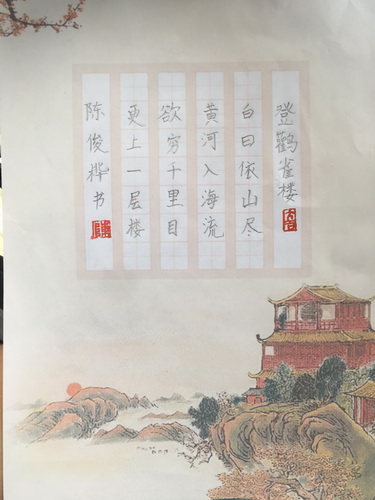 登鹳雀楼
白日依山尽
黄河入海流
欲穷千里目
更上一层楼
陈俊桦书